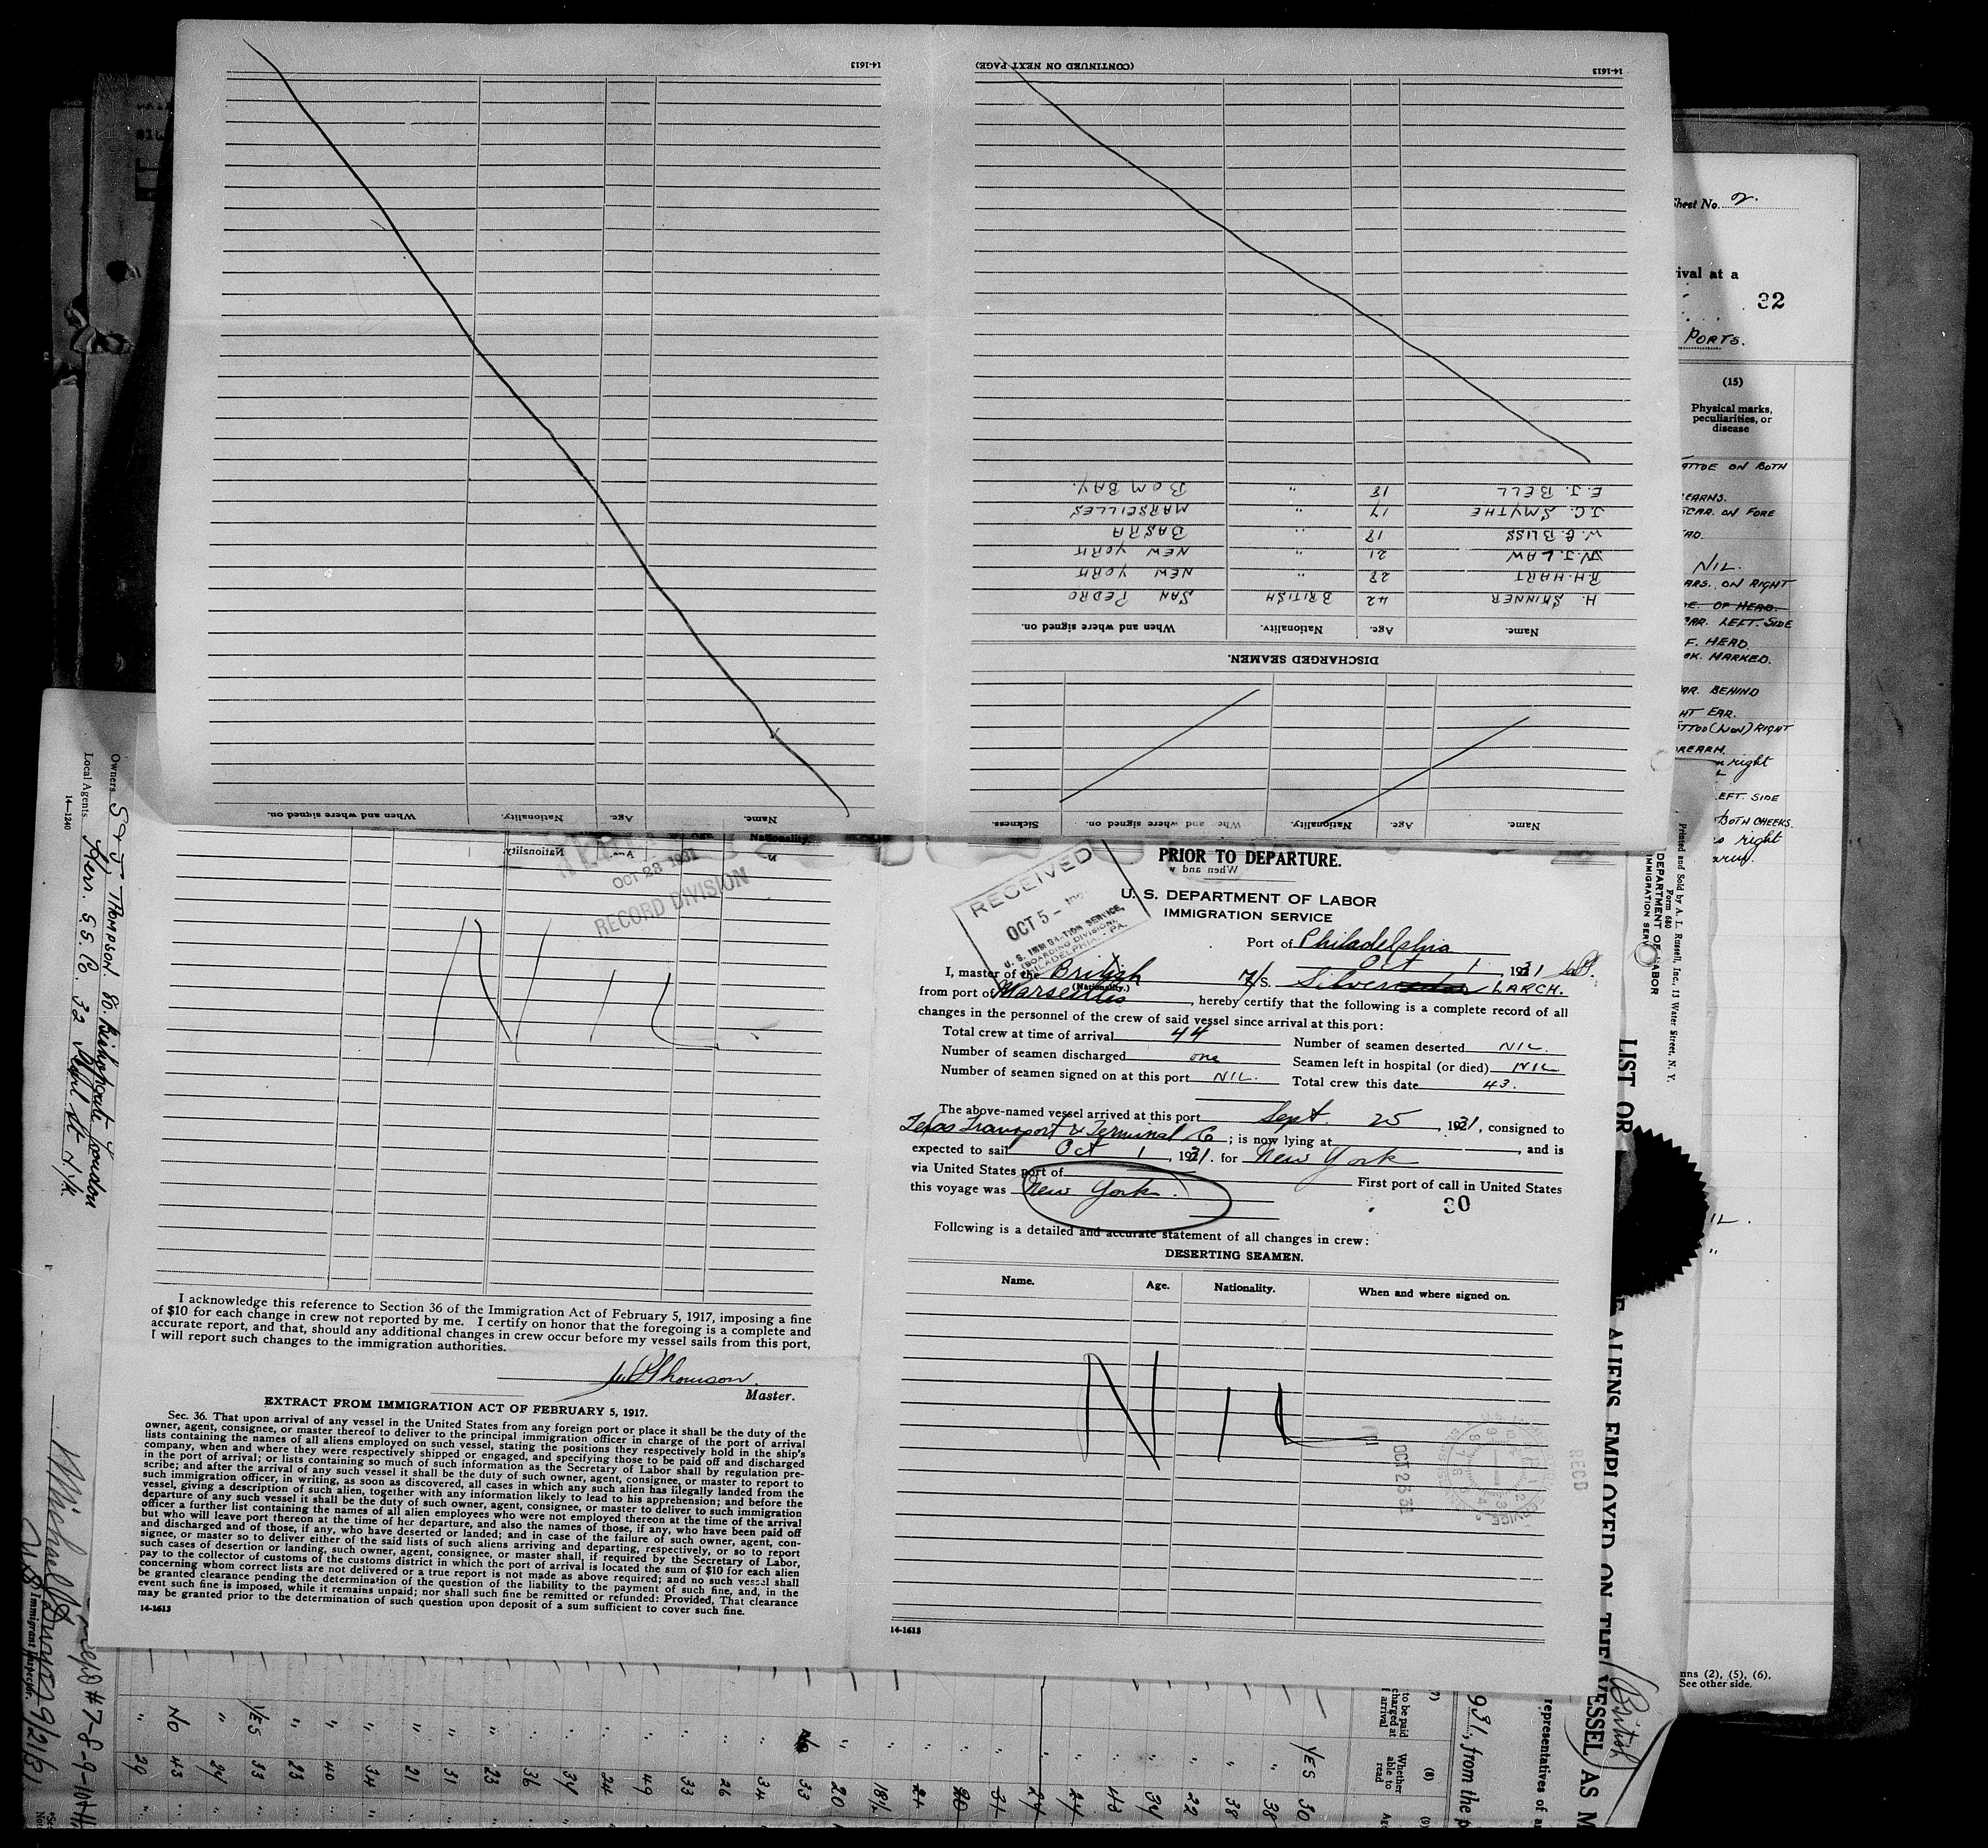 14-1613
(CONTINUED ON NEXT PAGE)
14-1613
E.J. BELL 18 " BOMBAY.
J.C. SMYTHE 17 " MARSEILLES
W.G. BLISS 18 " BASRA
W.J. LAW 21 " NEW YORK
R.H. HART 28 " NEW YORK
H. SKINNER 42 BRITISH SAN PEDRO
Name. Age. Nationality. When and where signed on.
DISCHARGED SEAMEN.
Name. Age. Nationality. When and where signed on. Sickness.
Name. Age. Nationality. When and where signed on.
Nationality.
OCT 23 1931
RECORD DIVISION
NIL
I acknowledge this reference to Section 36 of the Immigration Act of February 5, 1917, imposing a fine
of $10 for each change in crew not reported by me. I certify on honor that the foregoing is a complete and
accurate report, and that, should any additional changes in crew occur before my vessel sails from this port,
I will report such changes to the immigration authorities.
Thomson.
Master.
EXTRACT FROM IMMIGRATION ACT OF FEBRUARY 5, 1917.
Sec. 36. That upon arrival of any vessel in the United States from any foreign port or place it shall be the duty of the
owner, agent, consignee, or master thereof to deliver to the principal immigration officer in charge of the port of arrival
lists containing the names of all aliens employed on such vessel, stating the positions they respectively hold in the ship's
company, when and where they were respectively shipped or engaged, and specifying those to be paid off and discharged
in the port of arrival; or lists containing so much of such information as the Secretary of Labor shall by regulation pre-
scribe; and after the arrival of any such vessel it shall be the duty of such owner, agent, consignee, or master to report to
such immigration officer, in writing, as soon as discovered, all cases in which any such alien has illegally landed from the
vessel, giving a description of such alien, together with any information likely to lead to his apprehension; and before the
departure of any such vessel it shall be the duty of such owner, agent, consignee, or master to deliver to such immigration
officer a further list containing the names of all alien employees who were not employed thereon at the time of the arrival
but who will leave port thereon at the time of her departure, and also the names of those, if any, who have been paid off
and discharged and of those, if any, who have deserted or landed; and in case of the failure of such owner, agent, con-
signee, or master so to deliver either of the said lists of such aliens arriving and departing, respectively, or so to report
such cases of desertion or landing, such owner, agent, consignee, or master shall, if required by the Secretary of Labor,
pay to the collector of customs of the customs district in which the port of arrival is located the sum of $10 for each alien
concerning whom correct lists are not delivered or a true report is not made as above required; and no such vessel shall
be granted clearance pending the determination of the question of the liability to the payment of such fine, and, in the
event such fine is imposed, while it remains unpaid; nor shall such fine be remitted or refunded: Provided, That clearance
may be granted prior to the determination of such question upon deposit of a sum sufficient to cover such fine.
14-1613
PRIOR TO DEPARTURE.
U. S. DEPARTMENT OF LABOR
IMMIGRATION SERVICE
RECEIVED
OCT 5 -
U. S. IMMIGRATION SERVICE,
(BOARDING DIVISION)
PHILADELPHIA, - PA.
Port of Philadelphia
Oct 1, 1931
I, master of the British M/S. Silver LARCH.
(Nationality.)
from port of Marseilles, hereby certify that the following is a complete record of all
changes in the personnel of the crew of said vessel since arrival at this port:
Total crew at time of arrival 44 Number of seamen deserted NIL.
Number of seamen discharged one Seamen left in hospital (or died) NIL
Number of seamen signed on at this port NIL. Total crew this date 43.
The above-named vessel arrived at this port Sept. 25, 1931, consigned to
Texas Transport & Terminal Co; is now lying at, and is
expected to sail Oct 1, 1931. for New York
via United States port of First port of call in United States
this voyage was New York.
30
Following is a detailed and accurate statement of all changes in crew:
DESERTING SEAMEN.
Name. Age. Nationality. When and where signed on.
NIL
OCT 23 31
RECD
14-1613
Sheet No. 2.
ival at a
32
PORTS.
(15)
Physical marks,
peculiarities, or
disease
ATTOE ON BOTH
EARMS.
SCAR. ON FORE
AD.
NIL.
ARS. ON RIGHT
E. OF HEAD.
CAR. LEFT. SIDE
F. HEAD.
OK. MARKED.
AR. BEHIND
HT EAR.
TTOO RIGHT
REARM.
right
EFT. SIDE
BOTH CHEEKS.
right
arm.
IL.
"
nns (2), (5), (6).
See other side.
Printed and Sold by A. L. Russell, Inc., 13 Water Street, N. Y.
Form 680
DEPARTMENT OF LABOR
IMMIGRATION SERV
LIST OR
ALIENS EMPLOYED ON THE VESSEL AS M
British
representatives of a
931, from the p
(7)
to be paid
charged at
f arrival
(8)
Whether
able to
read
(9)
YES 30
" 38
" 38
" 22
" 34
" 43
Owners S & J Thompson. 80. Bishopgate London
Local Agents Kerr. S.S. Co. 32 Pearl St N.Y.
14-1240
Immigrant Inspector.
9/21/31
#7-8-9-10-11